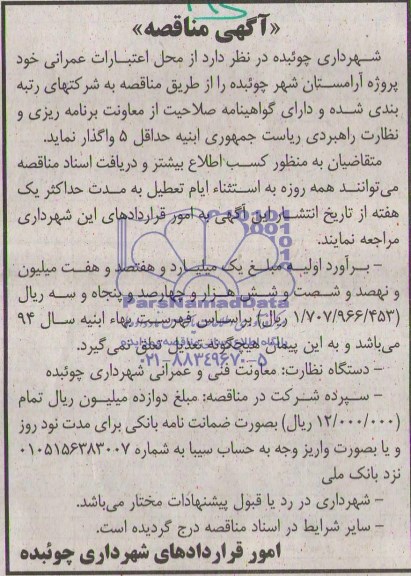 «آگهی مناقصه»
شهرداری چوئبده در نظر دارد از محل اعتبارات عمرانی خود
پروژه آرامستان شهر چوئبده را از طریق مناقصه به شرکتهای رتبه
بندی شده و دارای گواهینامه صلاحیت از معاونت برنامه ریزی و
نظارت راهبردی ریاست جمهوری ابنیه حداقل ۵ واگذار نماید.
متقاضیان به منظور کسب اطلاع بیشتر و دریافت اسناد مناقصه
می‌توانند همه روزه به استثناء ایام تعطیل به مدت حداکثر یک
هفته از تاریخ انتشار این آگهی به امور قراردادهای این شهرداری
مراجعه نمایند.
- برآورد اولیه مبلغ یک میلیارد و هفتصد و هفت میلیون
و نهصد و شصت و شش هزار و چهارصد و پنجاه و سه ریال
(۱/۷۰۷/۹۶۶/۴۵۳ ریال) براساس فهرست بهاء ابنیه سال ۹۴
می‌باشد و به این پیمان هیچگونه تعدیل تعلق نمی‌گیرد.
- دستگاه نظارت: معاونت فنی و عمرانی شهرداری چوئبده
- سپرده شرکت در مناقصه: مبلغ دوازده میلیون ریال تمام
(۱۲/۰۰۰/۰۰۰ ریال) بصورت ضمانت نامه بانکی برای مدت نود روز
و یا بصورت واریز وجه به حساب سیبا به شماره ۰۱۰۵۱۵۶۳۸۳۰۰۷
نزد بانک ملی
- شهرداری در رد یا قبول پیشنهادات مختار می‌باشد.
- سایر شرایط در اسناد مناقصه درج گردیده است.
امور قراردادهای شهرداری چوئبده
ParsNamadData
۰۲۱-۸۸۳۴۹۶۷۰-۵